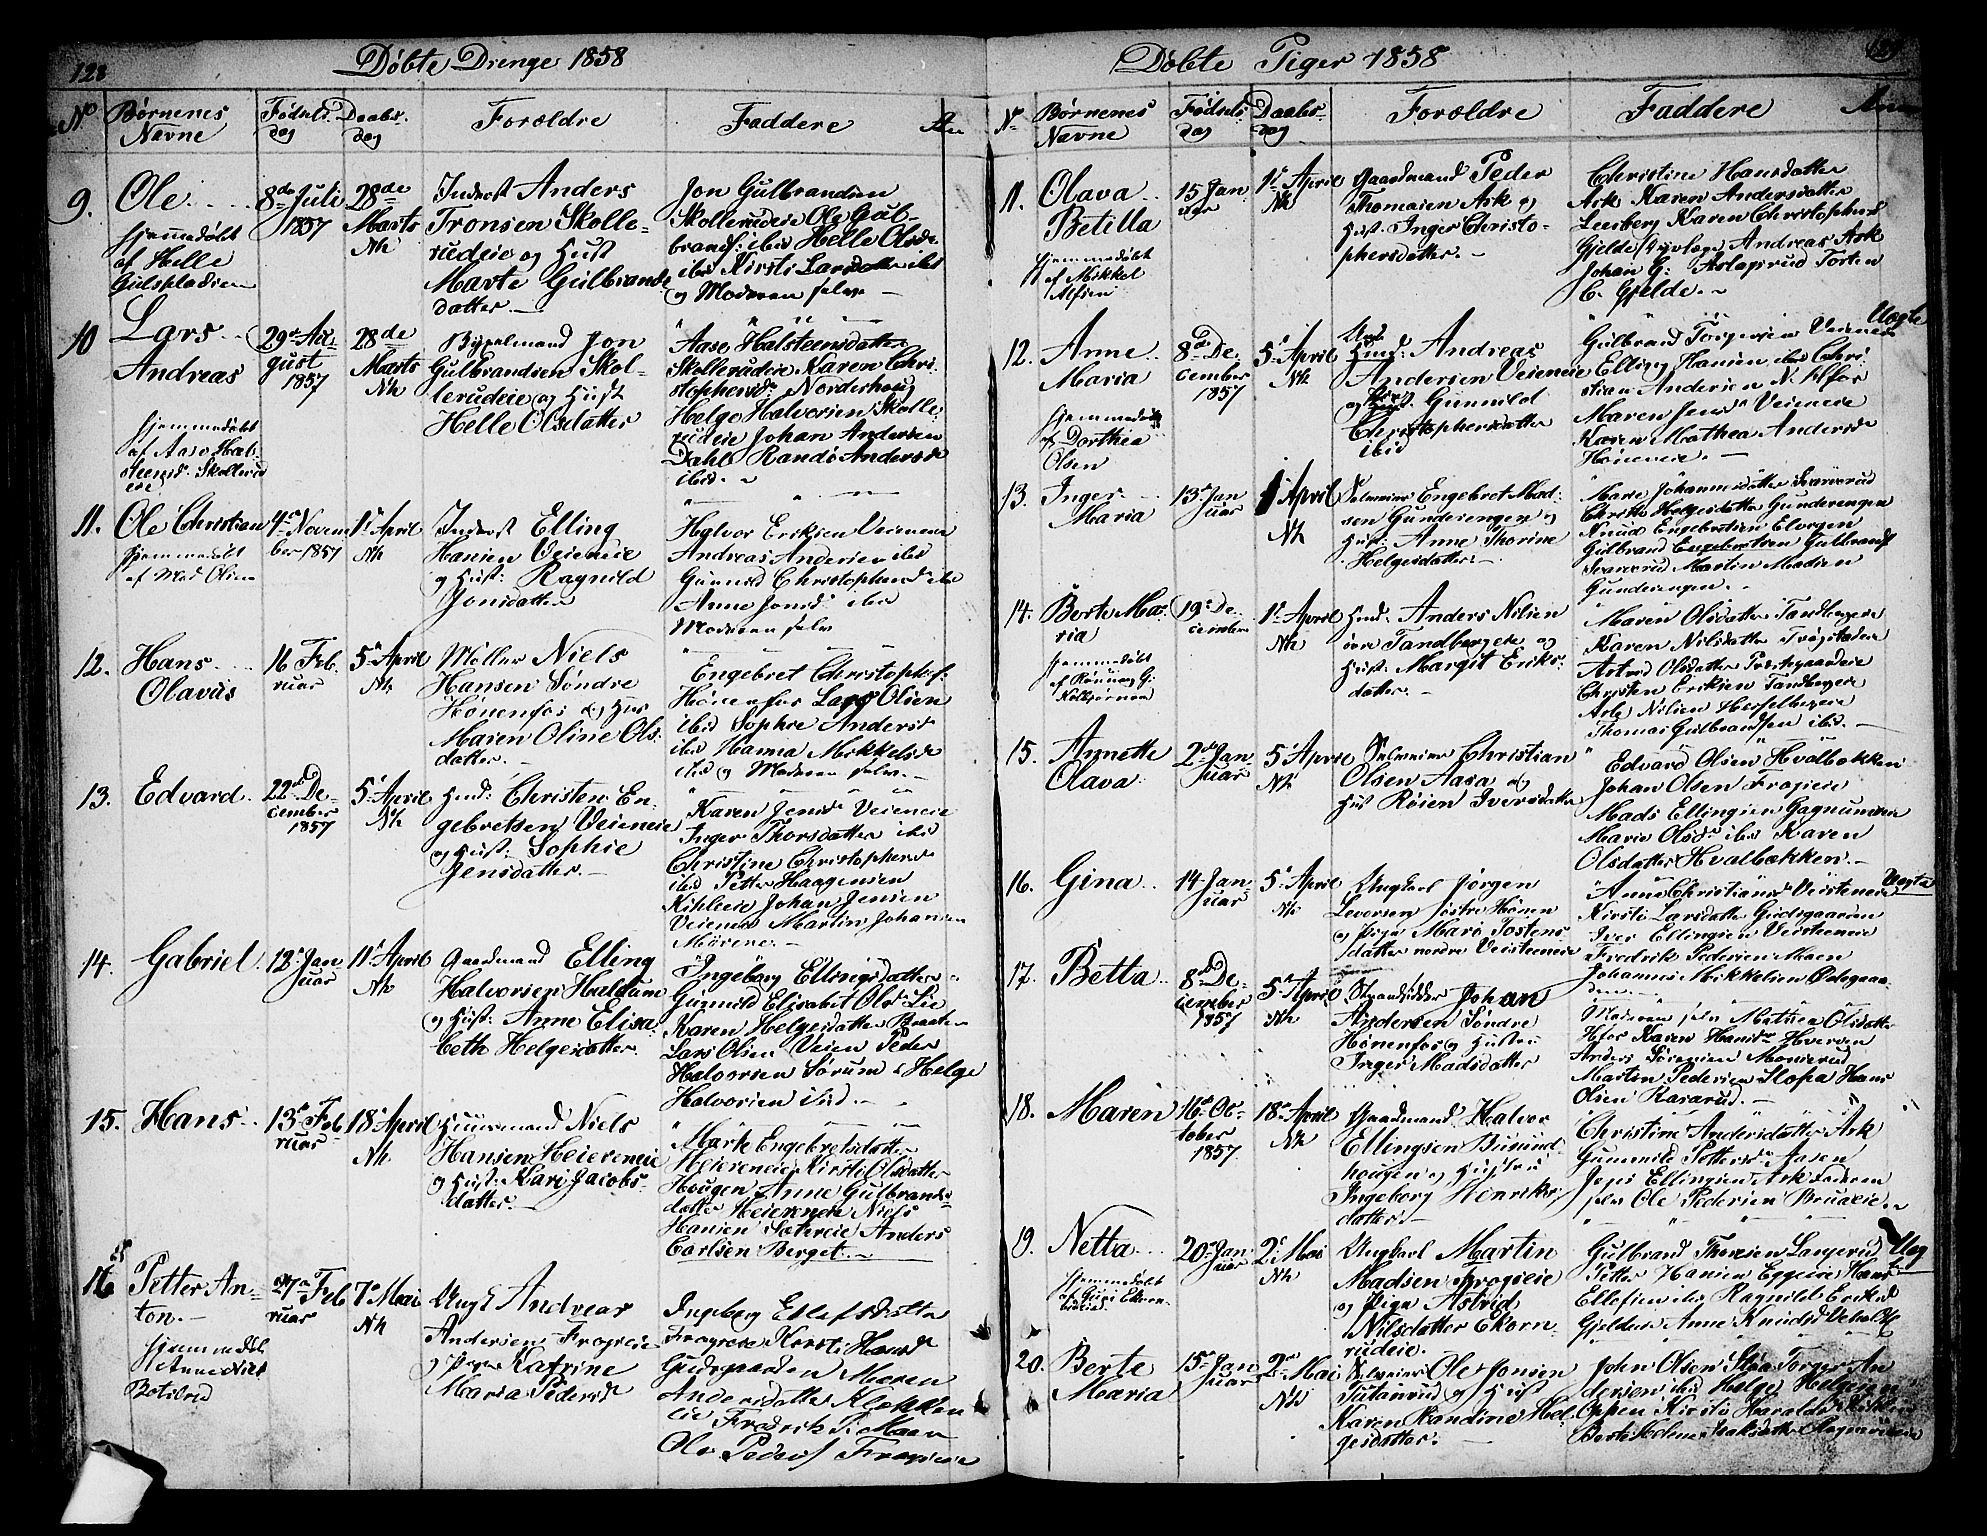 128
Døbte Drenge 1858
No
Børnenes
Navne
Fødsels
dag
Daabs
dag
Forældre
Faddere
An
9.
Ole
hjemmedøbt
af Helle
Gulspladsen
8de Juli
1857
28de
Marts
Nk
Inderst Anders
Tronsen Skolle-
rudeie og Hust
Marte Gulbrands
datter.
Jon Gulbrandsen
Skollerudeie Ole Gul-
brands: ibid Helle Olsd.
ibid Kirsti Larsdatter ibid
og Moderen selv
10
Lars
Andreas
hjemmedøbt
af Aase Hal-
steensd. Skollerud
eie
29de Au-
gust
1857
28de
Marts
Nk
Bygselmand Jon
Gulbrandsen Skol-
lerudeie og Hust
Helle Olsdatter
Aase Halsteensdatter
Skollerudeie Karen Chri
stophersd. Norderhoug
Helge Halvorsen Skolle
rudeie Johan Andersen
Dahl Randi Andersd
ibid.
11.
Ole Christian
hjemmedøbt
af Mad Olsen
4de Novem
ber 1857
1ste April
Nk
Inderst Elling
Hansen Veieneie
og Hust: Ragnild
Jonsdatter
Halvor Eriksen Veieneie
Andreas Andersen ibid
Gunnild Christophersd ibid
Anne Jonsd ibid
Moderen selv
12.
Hans
Olavus
16 Feb
ruar
5te April
Nk
Møller Niels
Hansen Søndre
Hønenfos og Hus
Maren Oline Ols
datter.
Engebret Christophs:
Hønenfos Lars Olsen
ibid Sophie Andersd
ibid Hanna Mikkelsd
ibid og Moderen selv.
13.
Edvard.
22de De-
cember
1857
5te April
Nk
Hmd: Christen En-
gebretsen Veieneie
og Hust: Sophie
Jensdatter.
Karen Jensd Veieneie
Inger Thorsdatter ibid
Christine Christophersd
ibid Petter Haagensen
Kihleeie Johan Jensen
Veienen Martin Johansen
Moerene.
14.
Gabriel.
12te Jan
uar
11te April
Nk
Gaardmand Elling
Halvorsen Haldum
og Hust: Anne Elisa-
beth Helgesdatter.
Ingeborg Ellingsdatter
Gunnild Elisabet Olsd Lie
Karen Helgesdatter Braaten
Lars Olsen Veien Peder
Halvorsen Sørum & Helge
Halvorsen ibid.
15.
Hans
13de Feb
ruar
18de April
Nk
Huusmand Niels
Hansen Heiereneie
og Hust: Kari Jacobs-
datter.
Marte Engebretsdatter
Heiereneie Kirsti Olsdatter
Hougen Anne Gulbrands
datter Heiereneie Niels
Hansen Sætereie Anders
Carlsen Berget.
16
Petter An-
ton.
hjemmedøb
af Anne Niels
Botolrud
27de Feb
ruar
7de Mai
Nk
Ungk Andreas
Andersen Frogseie
og Pigen Katrine
Maria Pedersd
Ingeborg Ellefsdatter
Frogseie Kirsti Hansd
Gudsgaarden Maren
Andersdatter Klækken
eie Fredrik P. Moen
Ole Peders: Frogseie
129
Døbte Piger 1858
No
Børnenes
Navne
Fødsels
dag
Daabs-
dag
Forældre
Faddere
Anm
11.
Olava
Betilla
hjemmedøbt
af Mikkel
Alfsen
15 Jan
uar
1ste April
Nk
Gaardmand Peder
Thomasen Ask og
Hust. Inger Christo-
phersdatter.
Christine Hansdatter
Ask Karen Andersdatter
Leesberg Karen Christophersd
Gjelde Andreas Ask
Johan G: Aslagsrud Torsten
C. Gjelde.
12.
Anne
Maria
hjemmedøbt
af Dorthea
Olsen
8de De-
cember
1857
5te April
Nk
Andreas
Andersen Veieneie
og Gunnild
Christophersdatter
ibid
Uægte
Gulbrand Torgersen Veienes
Elling Hansen ibid Chri
stian Andersen N. Hfos
Maren Jensd Veieneie
Karen Mathea Andersd
Høneneie.
13.
Inger
Maria
13de Jan
uar
1 April
Nk
Selveier Engebret Mad-
sen Gunderengen og
Hust: Anne Thorine
Helgesdatter.
Marie Johannesdatter Svarverud
Christi Helgesdatter Gunderengen
Knud Engebretsen Elvegen
Gulbrand Engebretsen Gulbrands
Svarverud Martin Madsen
Gunderengen.
14.
Berte Ma-
ria
hjemmedøbt
af Rønnaug G:
Kolbjørnsen
19de De-
cember
1ste April
Nk
Hmd: Anders Nilsen
øvre Tandbergeie og
Hust: Margit Eriks-
datter.
Maren Olsdatter Tandbergeie
Karen Nilsdatter Trøgstadeie
Astrid Olsdatter Præstegaardeie
Christen Eriksen Tandbergeie
Arle Nilsen Hesselbergeie
Thomas Gulbrandsen ibid.
15.
Annette
Olava
2den Jan
uar
5te April
Nk
Selveier Christian
Olsen Aasa og
Hust Røien Iversdatter
Edvard Olsen Hvalbækken
Johan Olsen Frogseie
Mads Ellingsen Gagnumeie
Marie Olsd ibid Karen
Olsdatter Hvalbækken.
16.
Gina
14 Jan
uar
5te April
Nk
Ungkarl Jørgen
Levorsen østre Hønen
og Pige Mari Tostens
datter nordre Veisteneie
Uægte
Anne Christiansd Veisteneie
Kirsti Larsdatter Gudsgaarden
Iver Ellingsen Veisteneie
Fredrik Pedersen Moen
Johannes Mikkelsen Ødegaar-
den
17.
Betta
8de De-
cember
1857
5te April
Nk
Strandsidder Johan
Andersen Søndre
Hønenfos og Hustru
Inger Madsdatter
Moderen selv Mathea Olsdatter
Hfos Karen Hansd Hverven
Anders Sørensen Monserud
Martin Pedersen Hofsa Hans
Olsen Kararud.
18.
Maren
16de Oc-
tober
1857
18de April
Nk
Gaardmand Halvor
Ellingsen Busund
hougen og Hustru
Ingeborg Henriks
datter.
Christine Andersdatter Ask
Gunnild Pettersd Aasen
Jens Ellingsen Ask Faderen
selv Ole Pedersen Bruaeie.
19.
Netta
hjemmedøbt
af Guri Ekorn-
rudeie
20de Jan
uar
2de Mai
Nk
Ungkarl Martin
Madsen Frogseie
og Pige Astrid
Nilsdatter Ekorn-
rudeie.
Uægt
Gulbrand Thoresen Langerud
Petter Hansen Eggeeie Hans
Ellefsen ibid Ragnild Eriksd
Gjelden Anne Knudsd
20.
Berte
Maria
15de Jan
uar
2den Mai
Nk
Selveier Ole Jonsen
Tutanrud og Hust
Karen Randine Hel
gesdatter.
John Olsen Stoa Torger An
dersen ibid Helge Helgesen
Oppen Kirsti Haralds
Berte Helene Isaksdatter